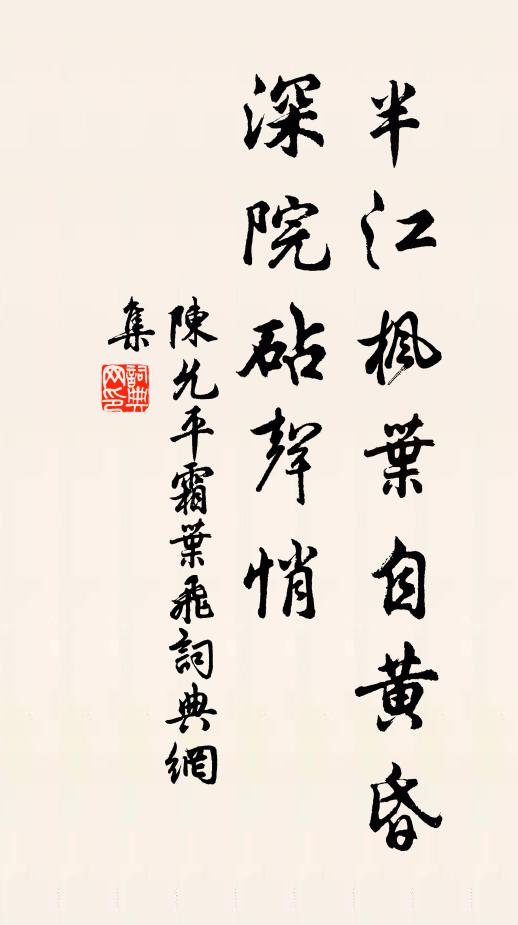 半江楓葉自黃昏
深院砧聲悄
陳允平霜葉飛詞典網
集
詞典
网印